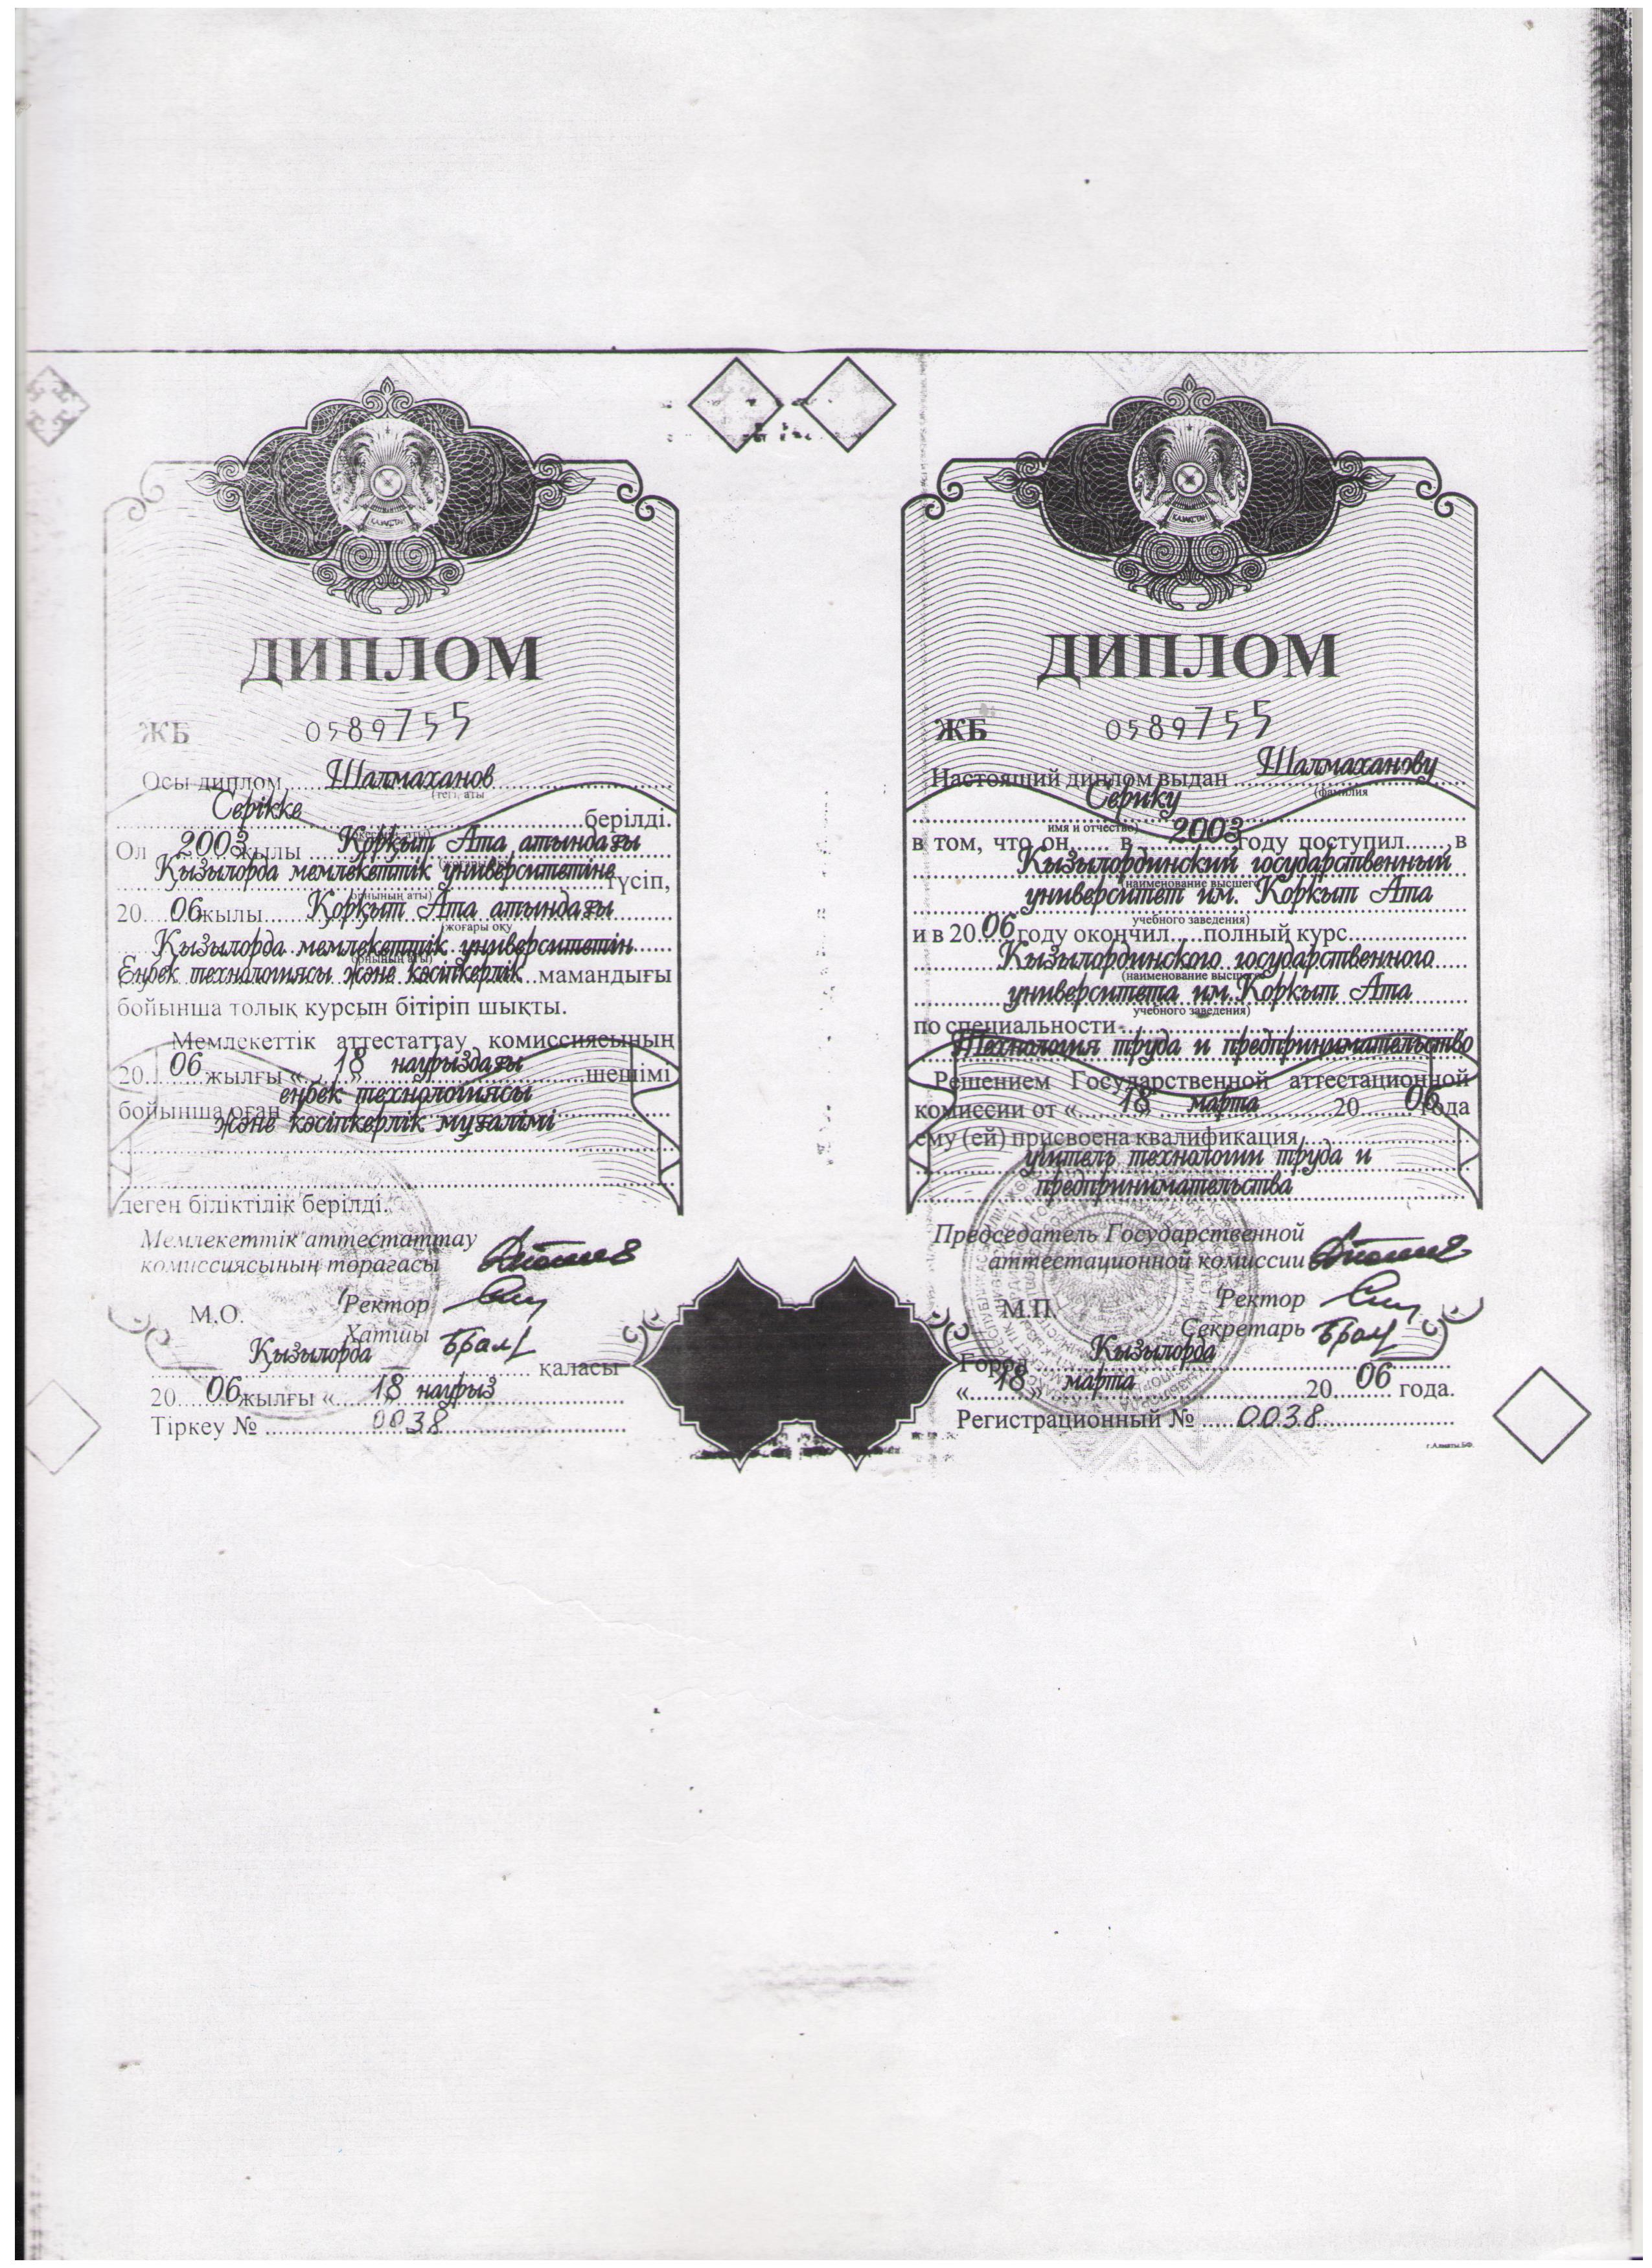 ҚАЗАҚСТАН
ДИПЛОМ
ЖБ 0589755
Осы диплом Шалмаханов
(тегі, аты
Серікке берілді.
Ол 2003 жылы Қорқыт Ата атындағы
Қызылорда мемлекеттік университетіне түсіп,
орнының аты)
20 06 жылы Қорқыт Ата атындағы
(жоғары оқу
Қызылорда мемлекеттік университетін
орнының аты)
Еңбек технологиясы және кәсіпкерлік мамандығы
бойынша толық курсын бітіріп шықты.
Мемлекеттік аттестаттау комиссиясының
20 06 жылғы « 18 » наурыздағы шешімі
бойынша оған еңбек технологиясы
және кәсіпкерлік мұғалімі
деген біліктілік берілді.
Мемлекеттік аттестаттау
комиссиясының төрағасы
М.О. Ректор
Хатшы
Қызылорда қаласы
20 06 жылғы « 18 наурыз
Тіркеу № 0038
ҚАЗАҚСТАН
ДИПЛОМ
ЖБ 0589755
Настоящий диплом выдан Шалмаханову
(фамилия
Серику
имя и отчество)
в том, что он в 2003 году поступил в
Кызылординский государственный
(наименование высшего
университет им. Коркыт Ата
учебного заведения)
и в 20 06 году окончил полный курс
Кызылординского государственного
(наименование высшего
университета им. Коркыт Ата
учебного заведения)
по специальности
Технология труда и предпринимательство
Решением Государственной аттестационной
комиссии от « 18 » марта 20 06 года
ему (ей) присвоена квалификация
учитель технологии труда и
предпринимательства
Председатель Государственной
аттестационной комиссии
М.П. Ректор
Секретарь
Город Кызылорда
« 18 » марта 20 06 года.
Регистрационный № 0038
г.Алматы.БФ.